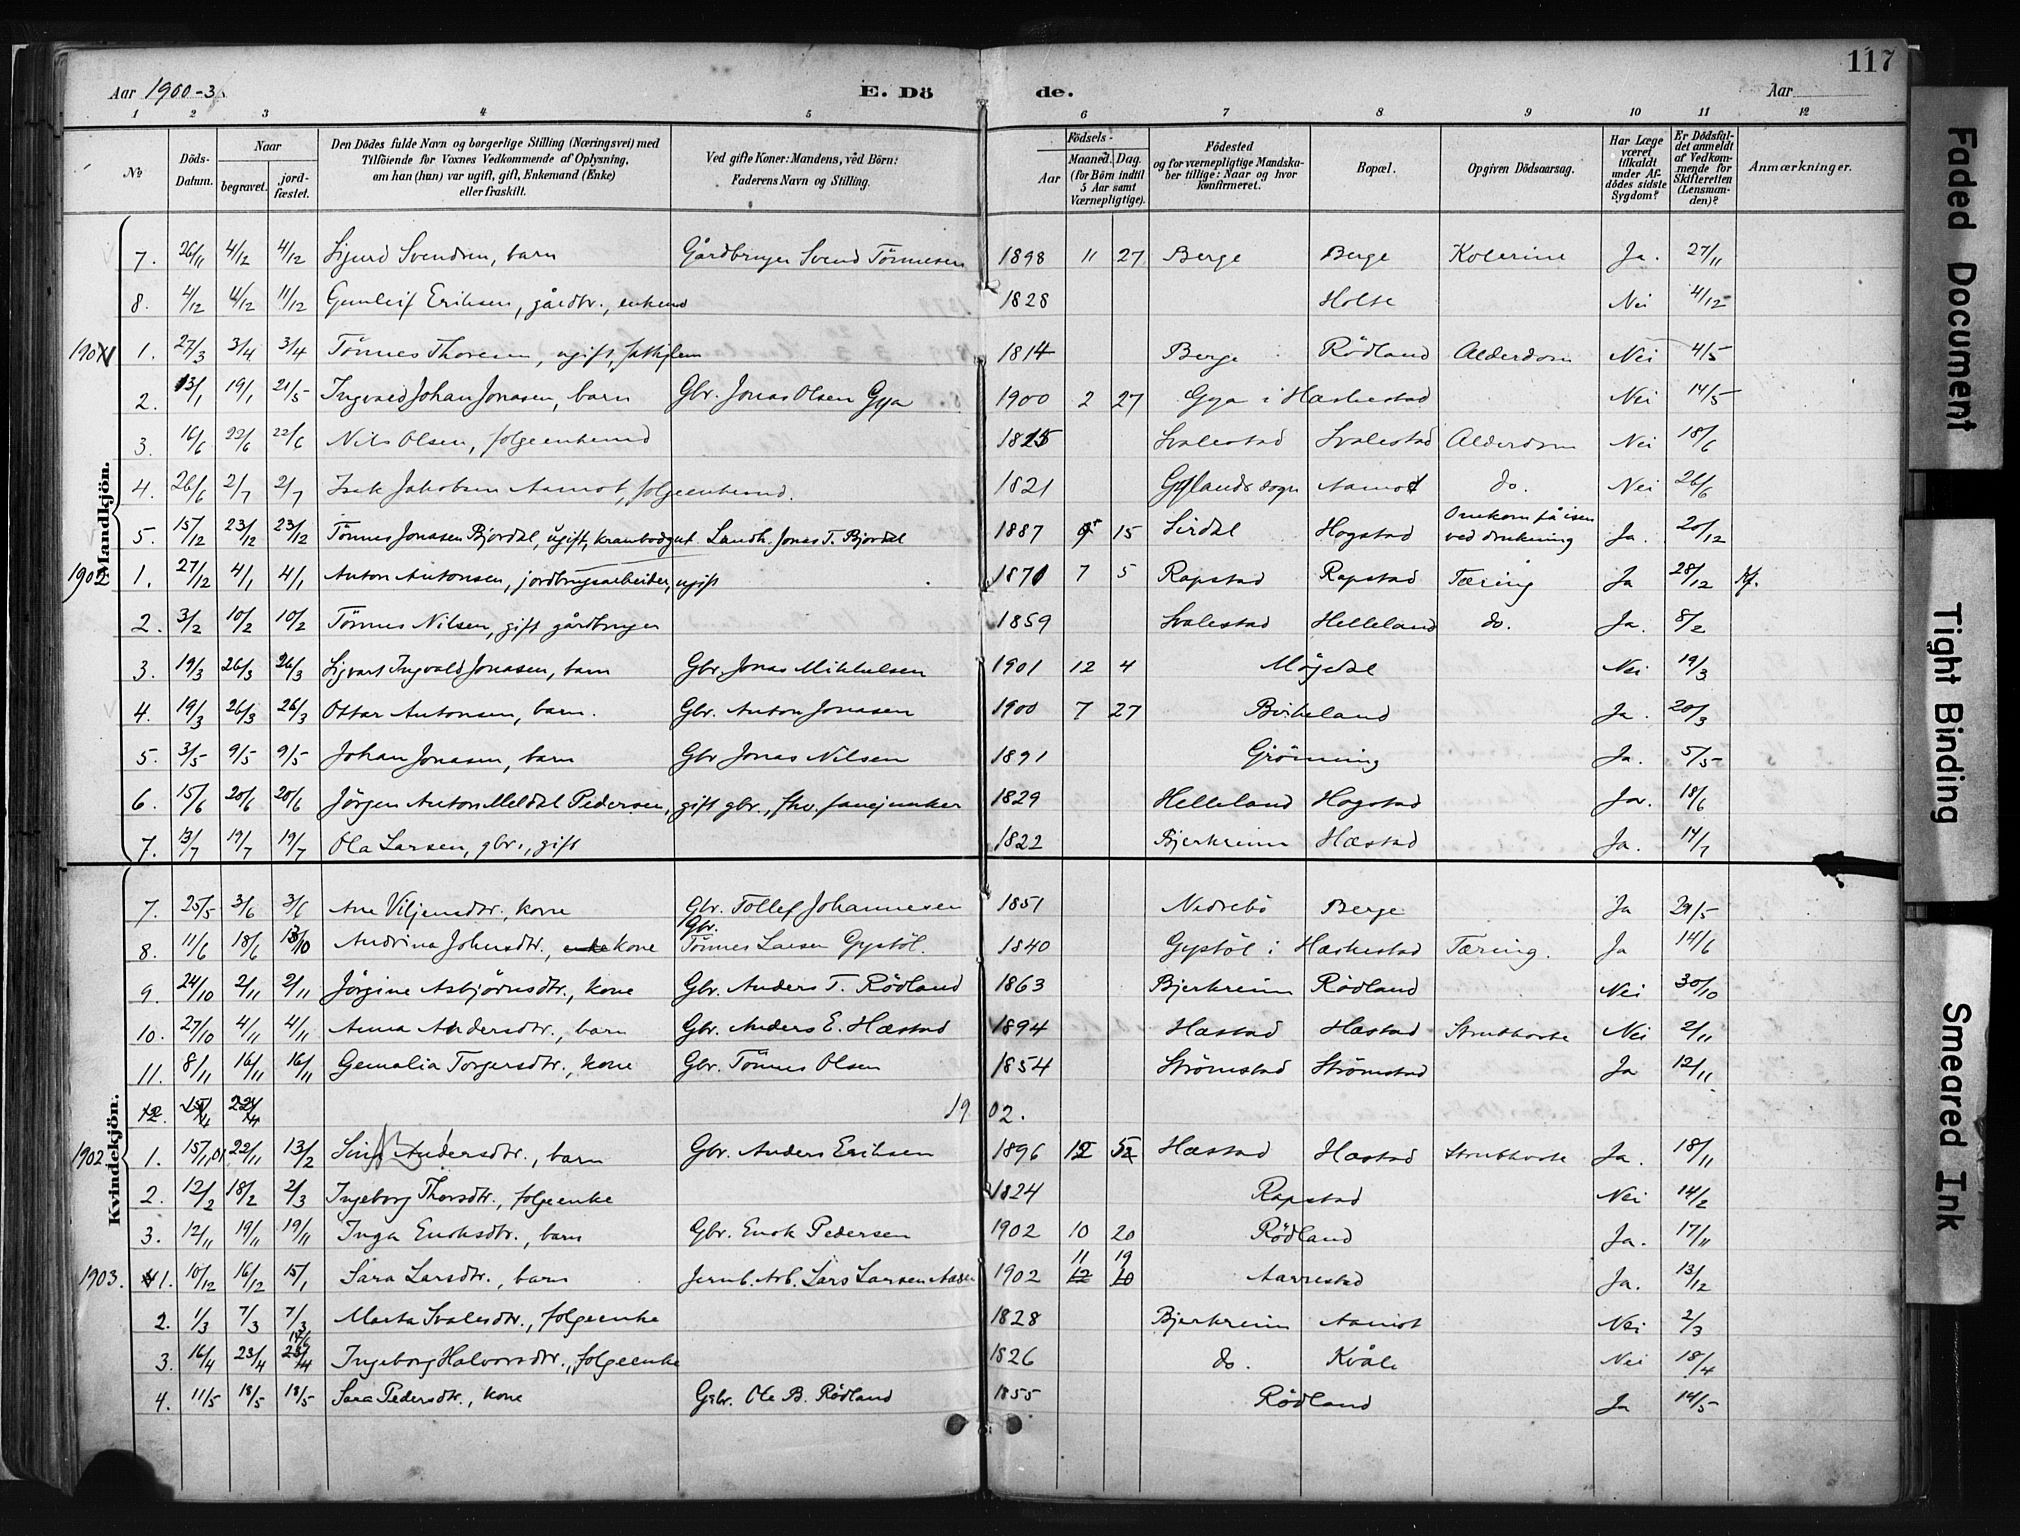 117
Aar 1900-3.
E. Dö de.
Aar
1 2 3 4 5 6 7 8 9 10 11 12
№
Döds-Datum.
Naar
begravet.
jord-fæstet.
Den Dödes fulde Navn og borgerlige Stilling (Næringsvei) med
Tilföiende for Voxnes Vedkommende af Oplysning,
om han (hun) var ugift, gift, Enkemand (Enke)
eller fraskilt.
Ved gifte Koner: Mandens, ved Börn:
Faderens Navn og Stilling.
Födsels-
Aar
Maaned. Dag.
(for Börn indtil
5 Aar samt
Værnepligtige).
Födested
og for værnepligtige Mandska-
ber tillige: Naar og hvor
konfirmeret.
Bopæl.
Opgiven Dödsaarsag.
Har Læge
været
tilkaldt
under Af-
dödes sidste
Sygdom?
Er Dödsfal-
det anmeldt
af Vedkom-
mende for
Skifteretten
(Lensman-
den)?
Anmærkninger.
Mandkjön.
7. 26/11 4/12 4/12 Sigurd Svendsen, barn Gårdbruger Svend Tönnesen 1898 11 27 Berge Berge Kolerine Ja. 27/11
8. 4/12 11/12 11/12 Gunleif Eriksen, gårdbr., enkemd 1828 Holte Nei 4/12
1901 1. 27/3 3/4 3/4 Tönnes Thoresen, ugift, fattiglem 1814 Berge Rödland Alderdom Nei 4/5
2. 13/1 19/1 21/5 Ingvald Johan Jonasen, barn Gbr. Jonas Olsen Gya 1900 2 27 Gya i Hæskestad Nei 14/5
3. 16/6 22/6 22/6 Nils Olsen, folgeenkemd Svalestad Svalestad Alderdom Nei 18/6
4. 26/6 2/7 2/7 Isak Jakobsen Aamot, folgeenkemd. 1821 Gylands sogn Aamot do. Nei 26/6
5. 15/12 23/12 23/12 Tönnes Jonasen Bjordal, ugift, Landh. Jonas T. Bjordal 1887 15 Sirdal Hogstad Omkom på isen ved drukning Ja. 20/12
1902 1. 27/12 4/1 4/1 Anton Antonsen, jordbrugsarbeider, ugift 1871 7 5 Rapstad Rapstad Tæring Ja 28/12
2. 3/2 10/2 10/2 Tönnes Nilsen, gift gårdbruger 1859 Svalestad Helleland do. Ja. 8/2
3. 19/3 26/3 26/3 Sigvart Ingvald Jonasen, barn Gbr. Jonas Mikkelsen 1901 12 4 Möjedal Nei 19/3
4. 19/3 26/3 26/3 Ottar Antonsen, barn. Gbr. Anton Jonasen 1900 7 27 Birkeland Ja. 20/3
5. 3/5 9/5 9/5 Johan Jonasen, barn Gbr Jonas Nilsen 1891 Grönning Ja. 5/5
6. 15/6 20/6 20/6 Jörgen Anton Meldal Pedersen, gift gbr., fhv. fanejunker 1829 Helleland Hogstad Ja. 18/6
7. 13/7 19/7 19/7 Ola Larsen, gbr., gift 1822 Bjerkreim Hæstad Ja. 14/7
Kvindekjön.
7. 25/5 3/6 3/6 Ane Viljemsdtr., kone Gbr. Tollef Johannesen 1851 Nedrebö Berge Ja 29/5
8. 11/6 18/6 Andrina Johnsdtr., enke kone Gbr. Tönnes Larsen Gystöl. 1840 Gystöl i Hæskestad Tæring. Ja 14/6
9. 24/10 2/11 2/11 Jörgine Asbjörnsdtr., kone Gbr. Anders T. Rödland 1863 Bjerkreim Rödland Nei 30/10
10. 27/10 4/11 4/11 Anna Andersdtr., barn Gbr. Anders E. Hæstad 1894 Hæstad Hæstad Strubhoste Nei 2/11
11. 8/11 16/11 16/11 Gemalia Torgersdtr., kone Gbr. Tönnes Olsen 1854 Strömstad Strömstad Ja 12/11
12. 1902.
1902 1. 15/11 01 22/11 13/2 Sina Andersdtr., barn Gbr. Anders Eriksen 1896 12 Hæstad Hæstad Strubhoste Ja. 18/11
2. 12/2 18/2 2/3 Ingeborg Thorsdtr., folgeenke 1824 Rapstad Nei 14/2
3. 12/11 19/11 19/11 Inga Enoksdtr., barn Gbr. Enok Pedersen 1902 10 20 Rödland Ja. 17/11
1903. 1. 10/12 16/12 15/1 Sara Larsdtr., barn Jernb. Arb. Lars Larsen 1902 11 19 12 10 Aarrestad Ja. 13/12
2. 1/3 7/3 7/3 Marta Svalesdtr., folgeenke 1828 Bjerkreim Aamot Nei 2/3
3. 16/4 23/4 23/4 Ingeborg Halvorsdtr., folgeenke 1826 do. Kvåle Nei 18/4
4. 11/5 18/5 18/5 Sara Pedersdtr., kone Gbr. Ole B. Rödland 1855 Rödland Ja 14/5
Faded Document
Tight Binding
Smeared Ink